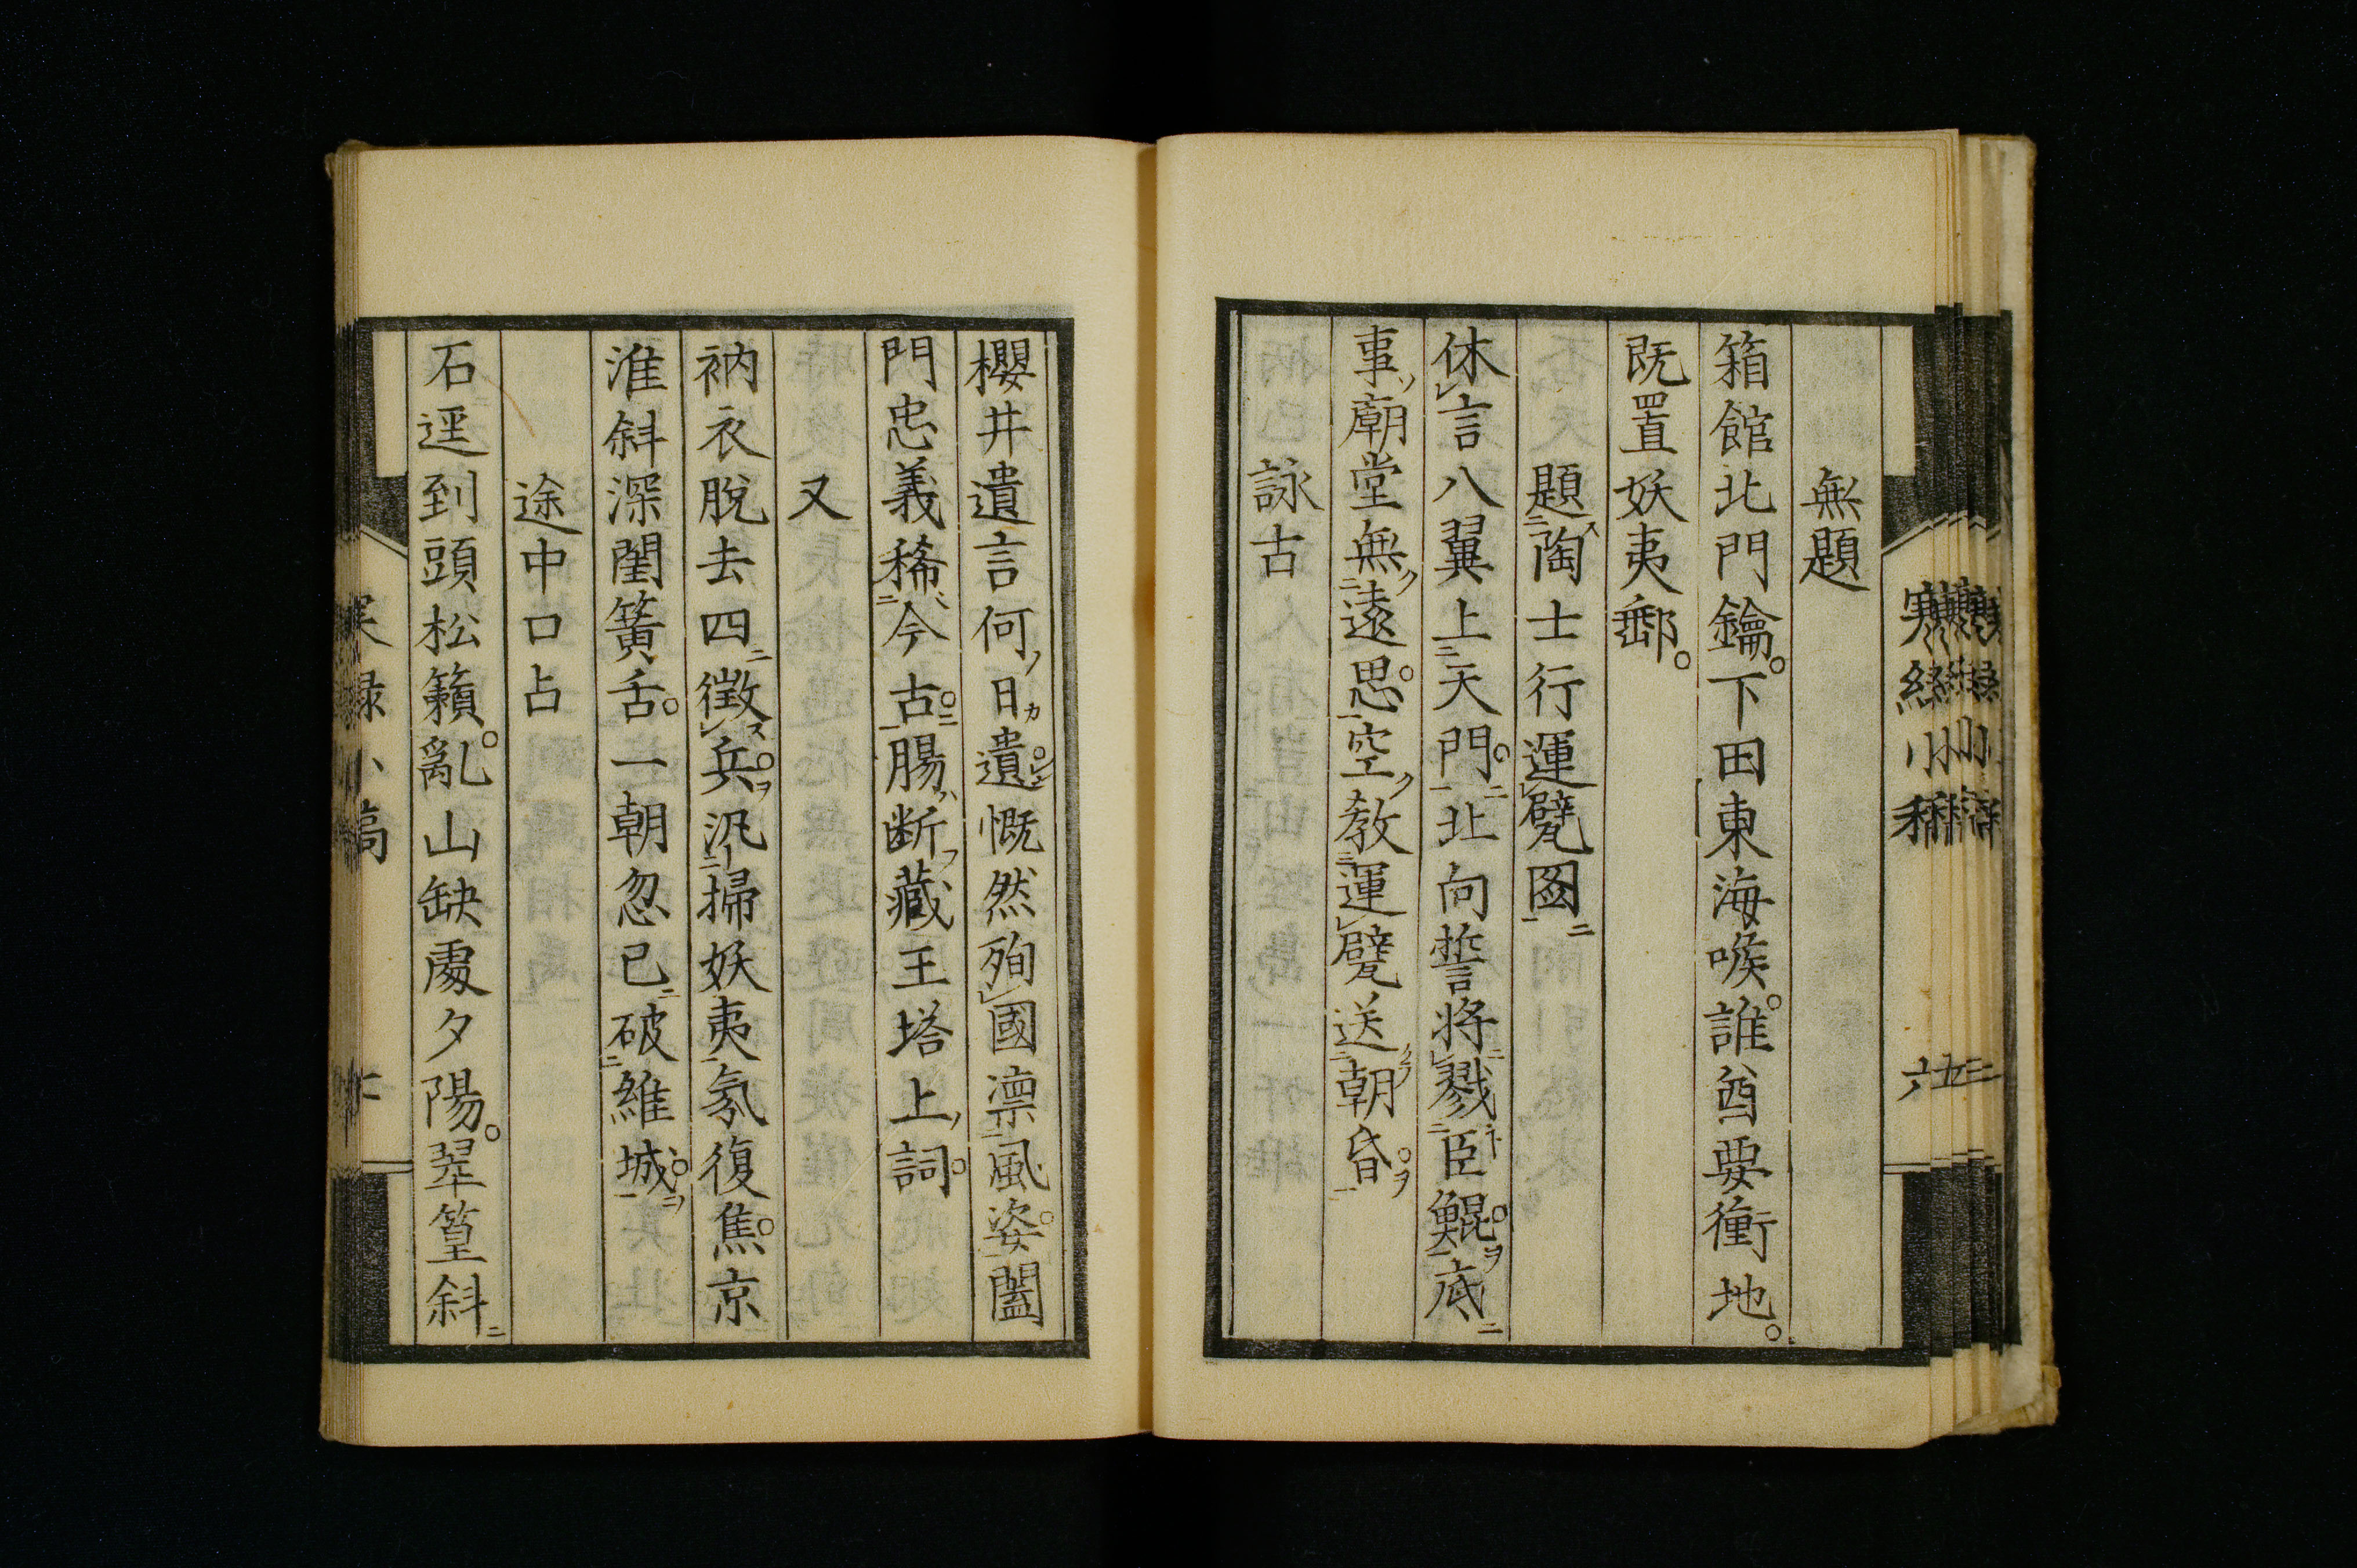 無題
箱館北門鑰。下田東海喉。誰酋要衝地。
既置妖夷郵。
題陶士行運甓图
休言八翼上天門。北向誓将戮臣鯤。底
事廟堂無遠思。空教運甓送朝昏。
詠古
櫻井遺言何日遺。慨然殉國凛風姿。闔
門忠義稀今古。腸断藏王塔上詞。
又
衲衣脫去四徴兵。汎掃妖夷氛復焦。京
淮斜深閨簧舌。一朝忽已破維城。
途中口占
石逕到頭松籟。亂山缺處夕陽。翠篁斜
寒緑小稿
六